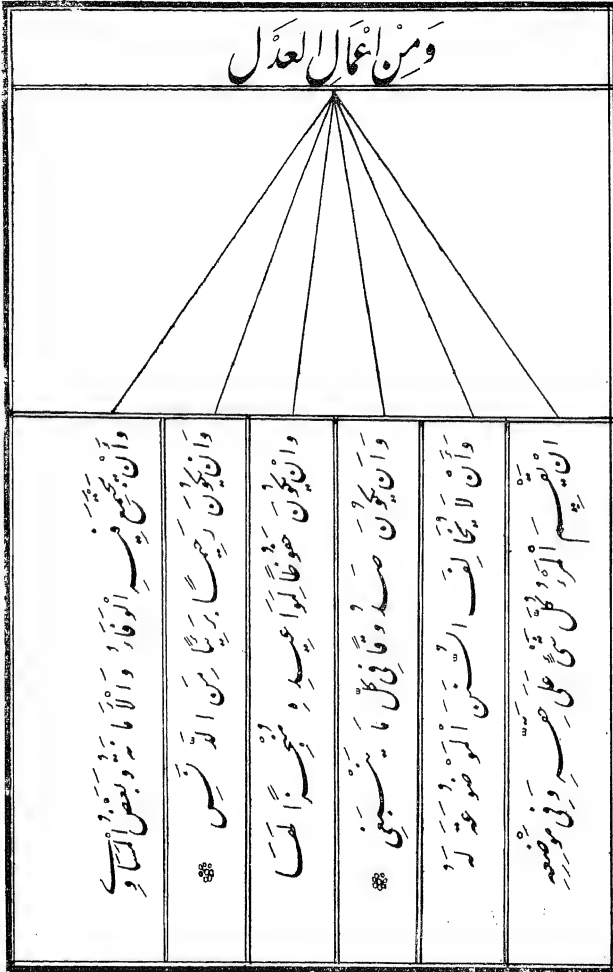 وَمِنْ اعْمَالِ العَدْلِ
انْ يُقِيْمَ المَرْءُ كُلَّ شَيْءٍ عَلَى حَقِّهِ وَفِي مَوْضِعِهِ
وَأَنْ لَا يُخَالِفَ السُّنَنَ المَوْضُوعَةَ لَهُ
وَانْ يَكُوْنَ صَدُوْقًا فِي كُلِّ مَا يَنْبَغِي
وانْ يَكُوْنَ حَفُوْظًا لِمَوَاعِيدِهِ مُنْجِزًا لَهَا
وَانْ يَكُوْنَ رَحِيْمًا بَرِيْئًا مِنَ الدَّنَسِ
وَأَنْ يَجْتَمِعَ فِيْهِ الوَقَارُ وَالْأَمَانَةُ وَبُغْضُ